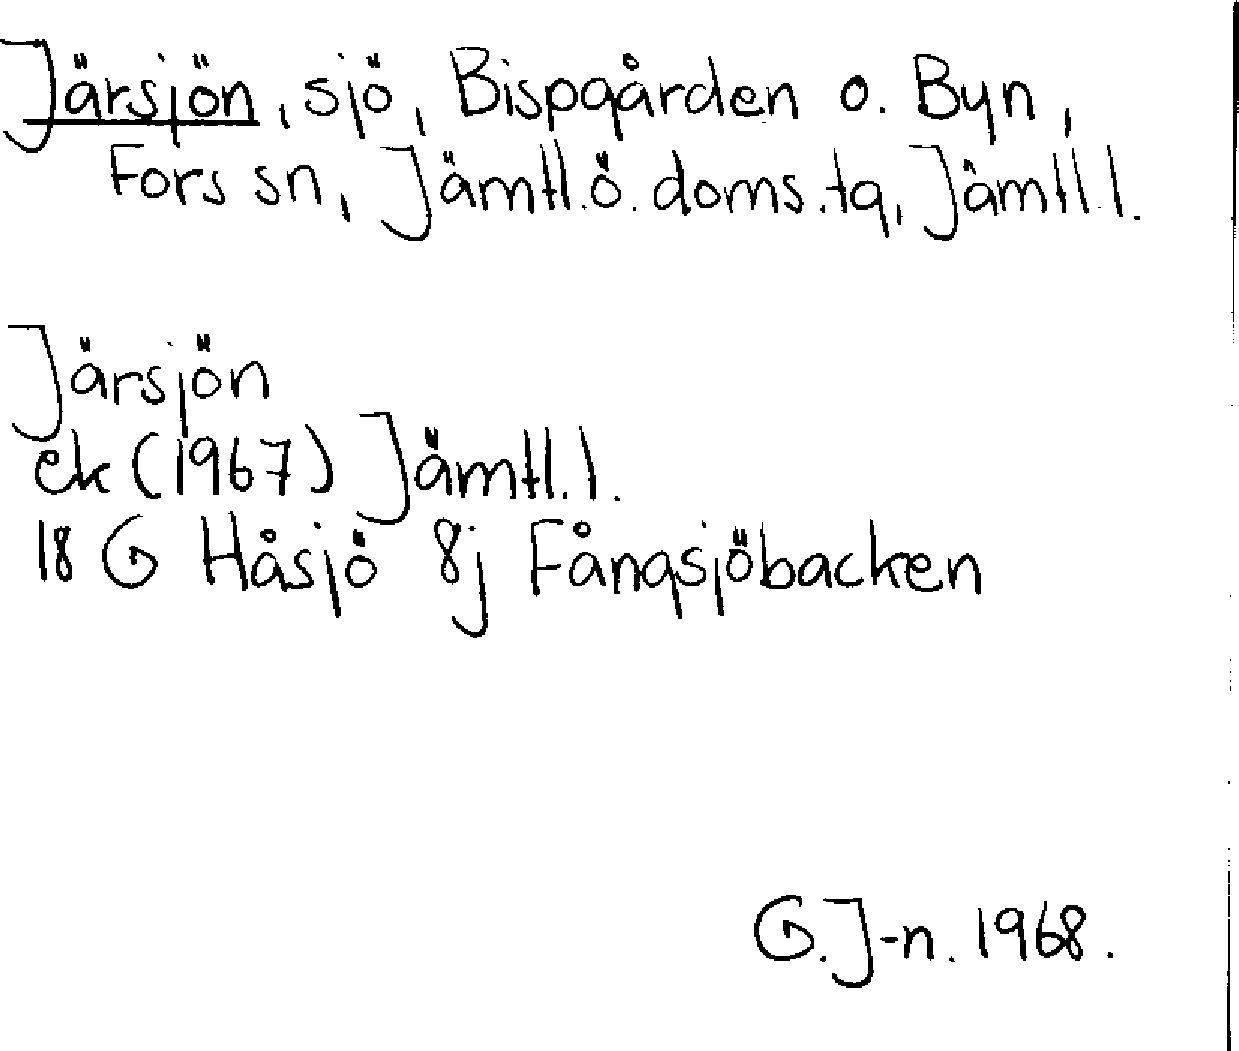 Järsjön, sjö, Bispgården o. Byn,
Fors sn, Jämtl.ö.doms.tg, Jämtl.l.
Järsjön
ek (1967) Jämtl.l.
18 G Håsjö 8j Fångsjöbacken
G.J-n. 1968.